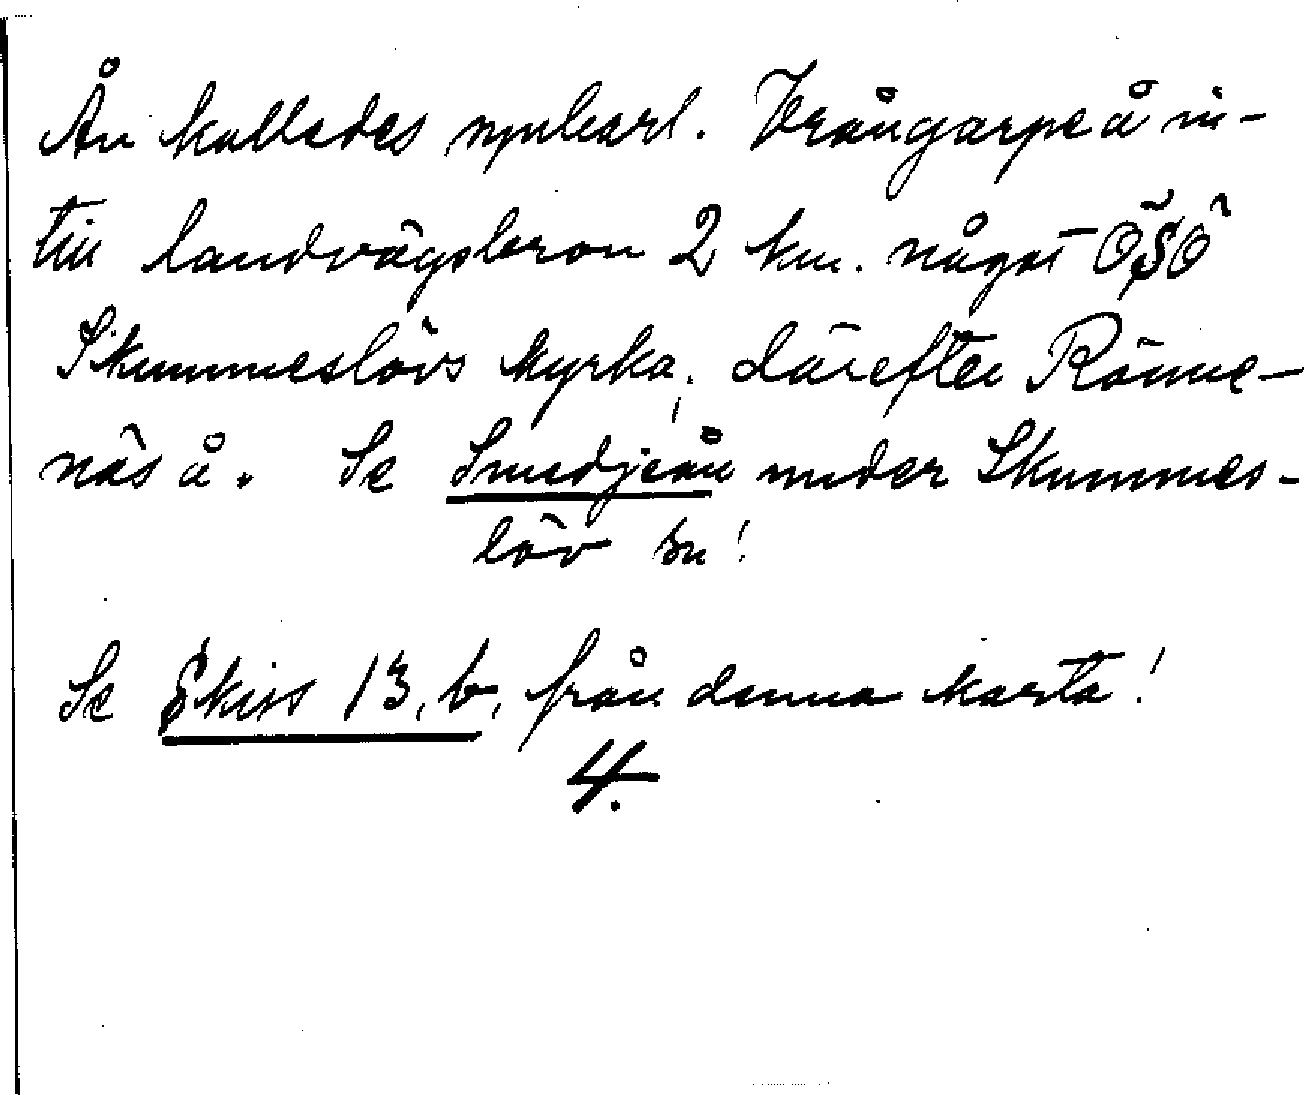 Ån kallades uppkarl. Vrångarpeå in-
till landvägsbron 2 km. något ÖSÖ
Skummeslövs kyrka, därefter Rönne-
näs å. Se Smedjeån under Skummes-
löv sn!
Se Skiss 13, b, från denna karta!
4.